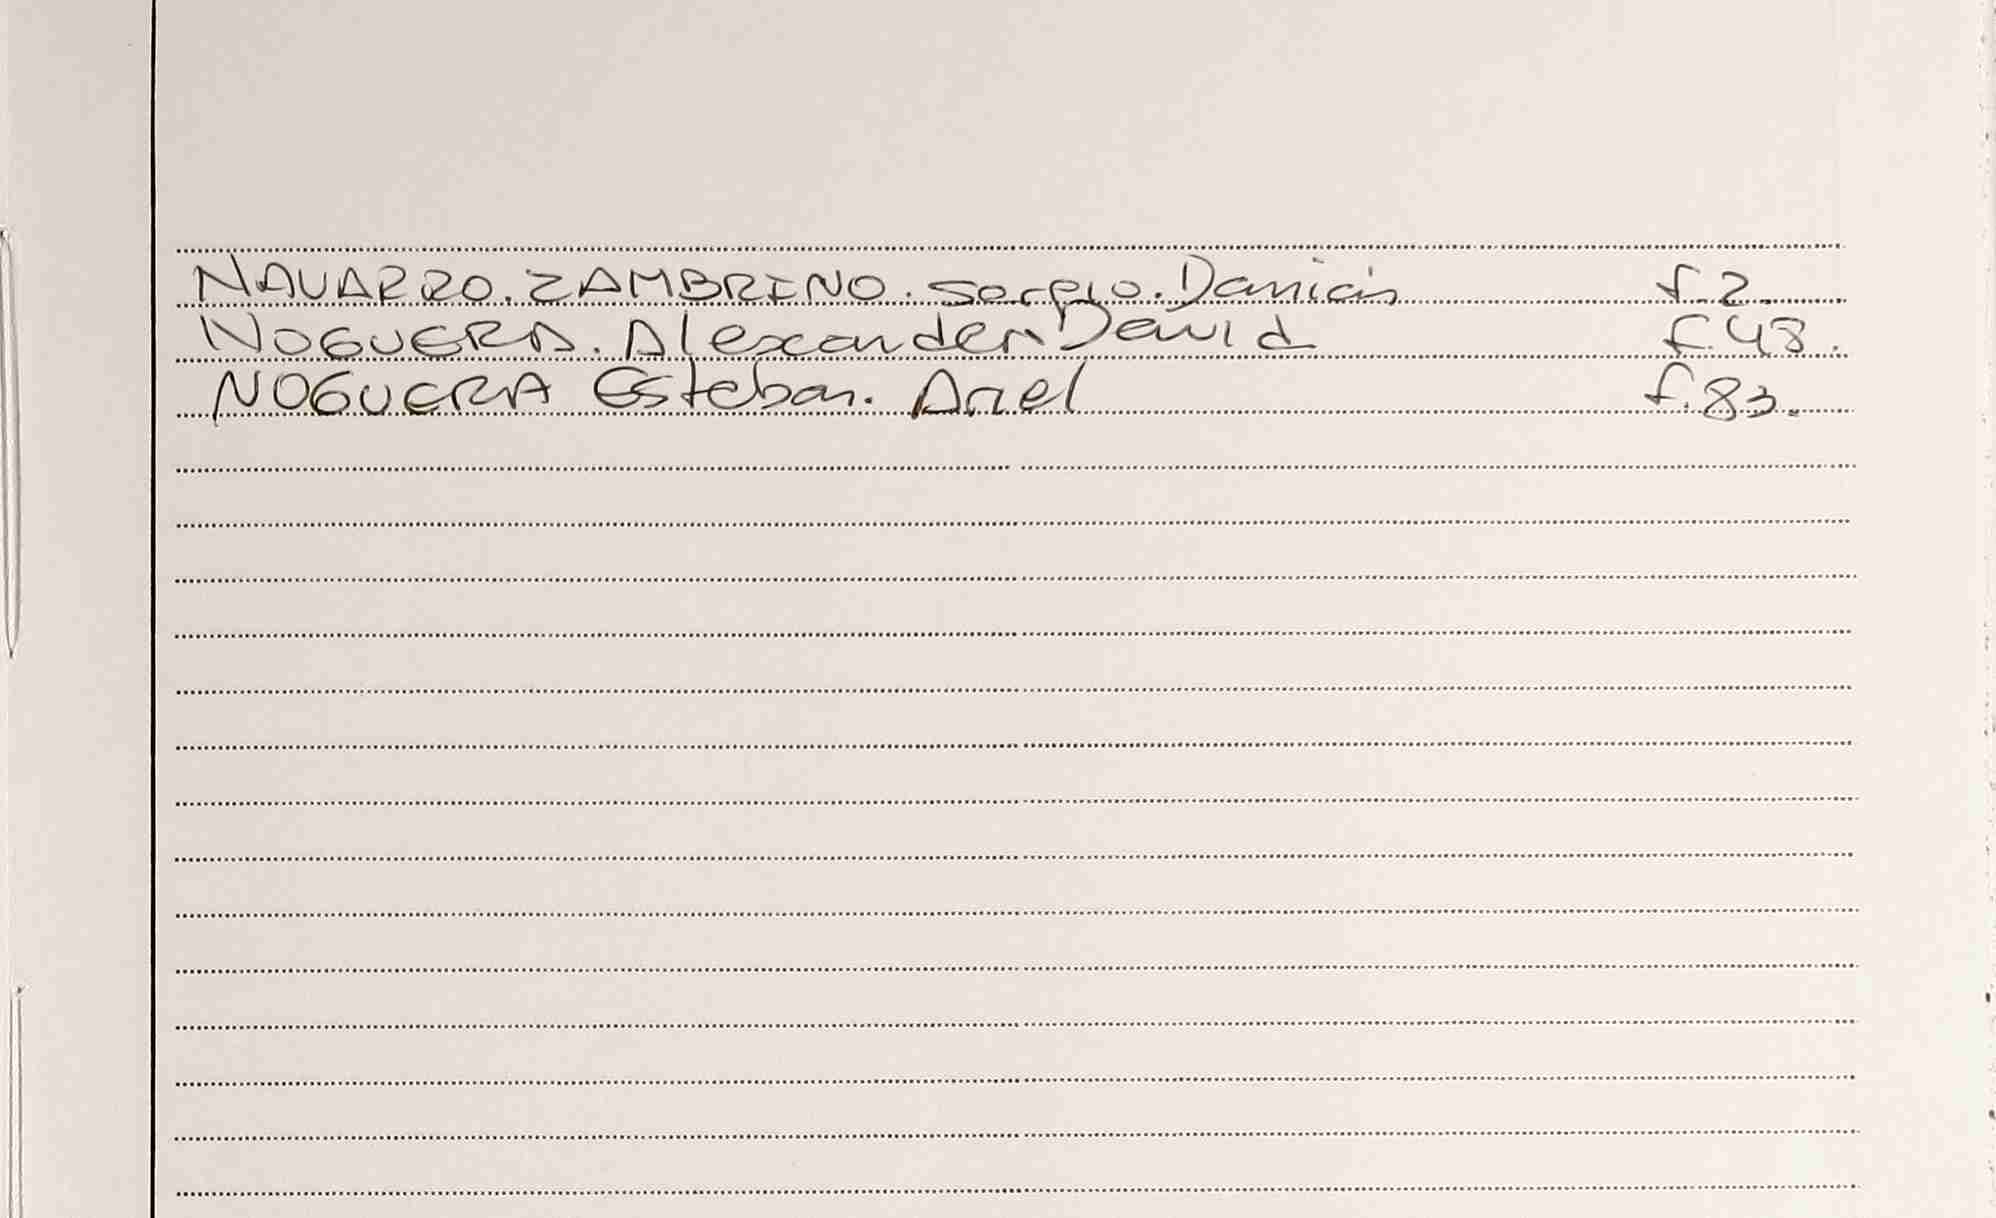 NAVARRO. ZAMBRINO. Sergio. Damián f. 2.
NOGUERA. Alexander David f. 48.
NOGUERA Esteban. Ariel f. 83.